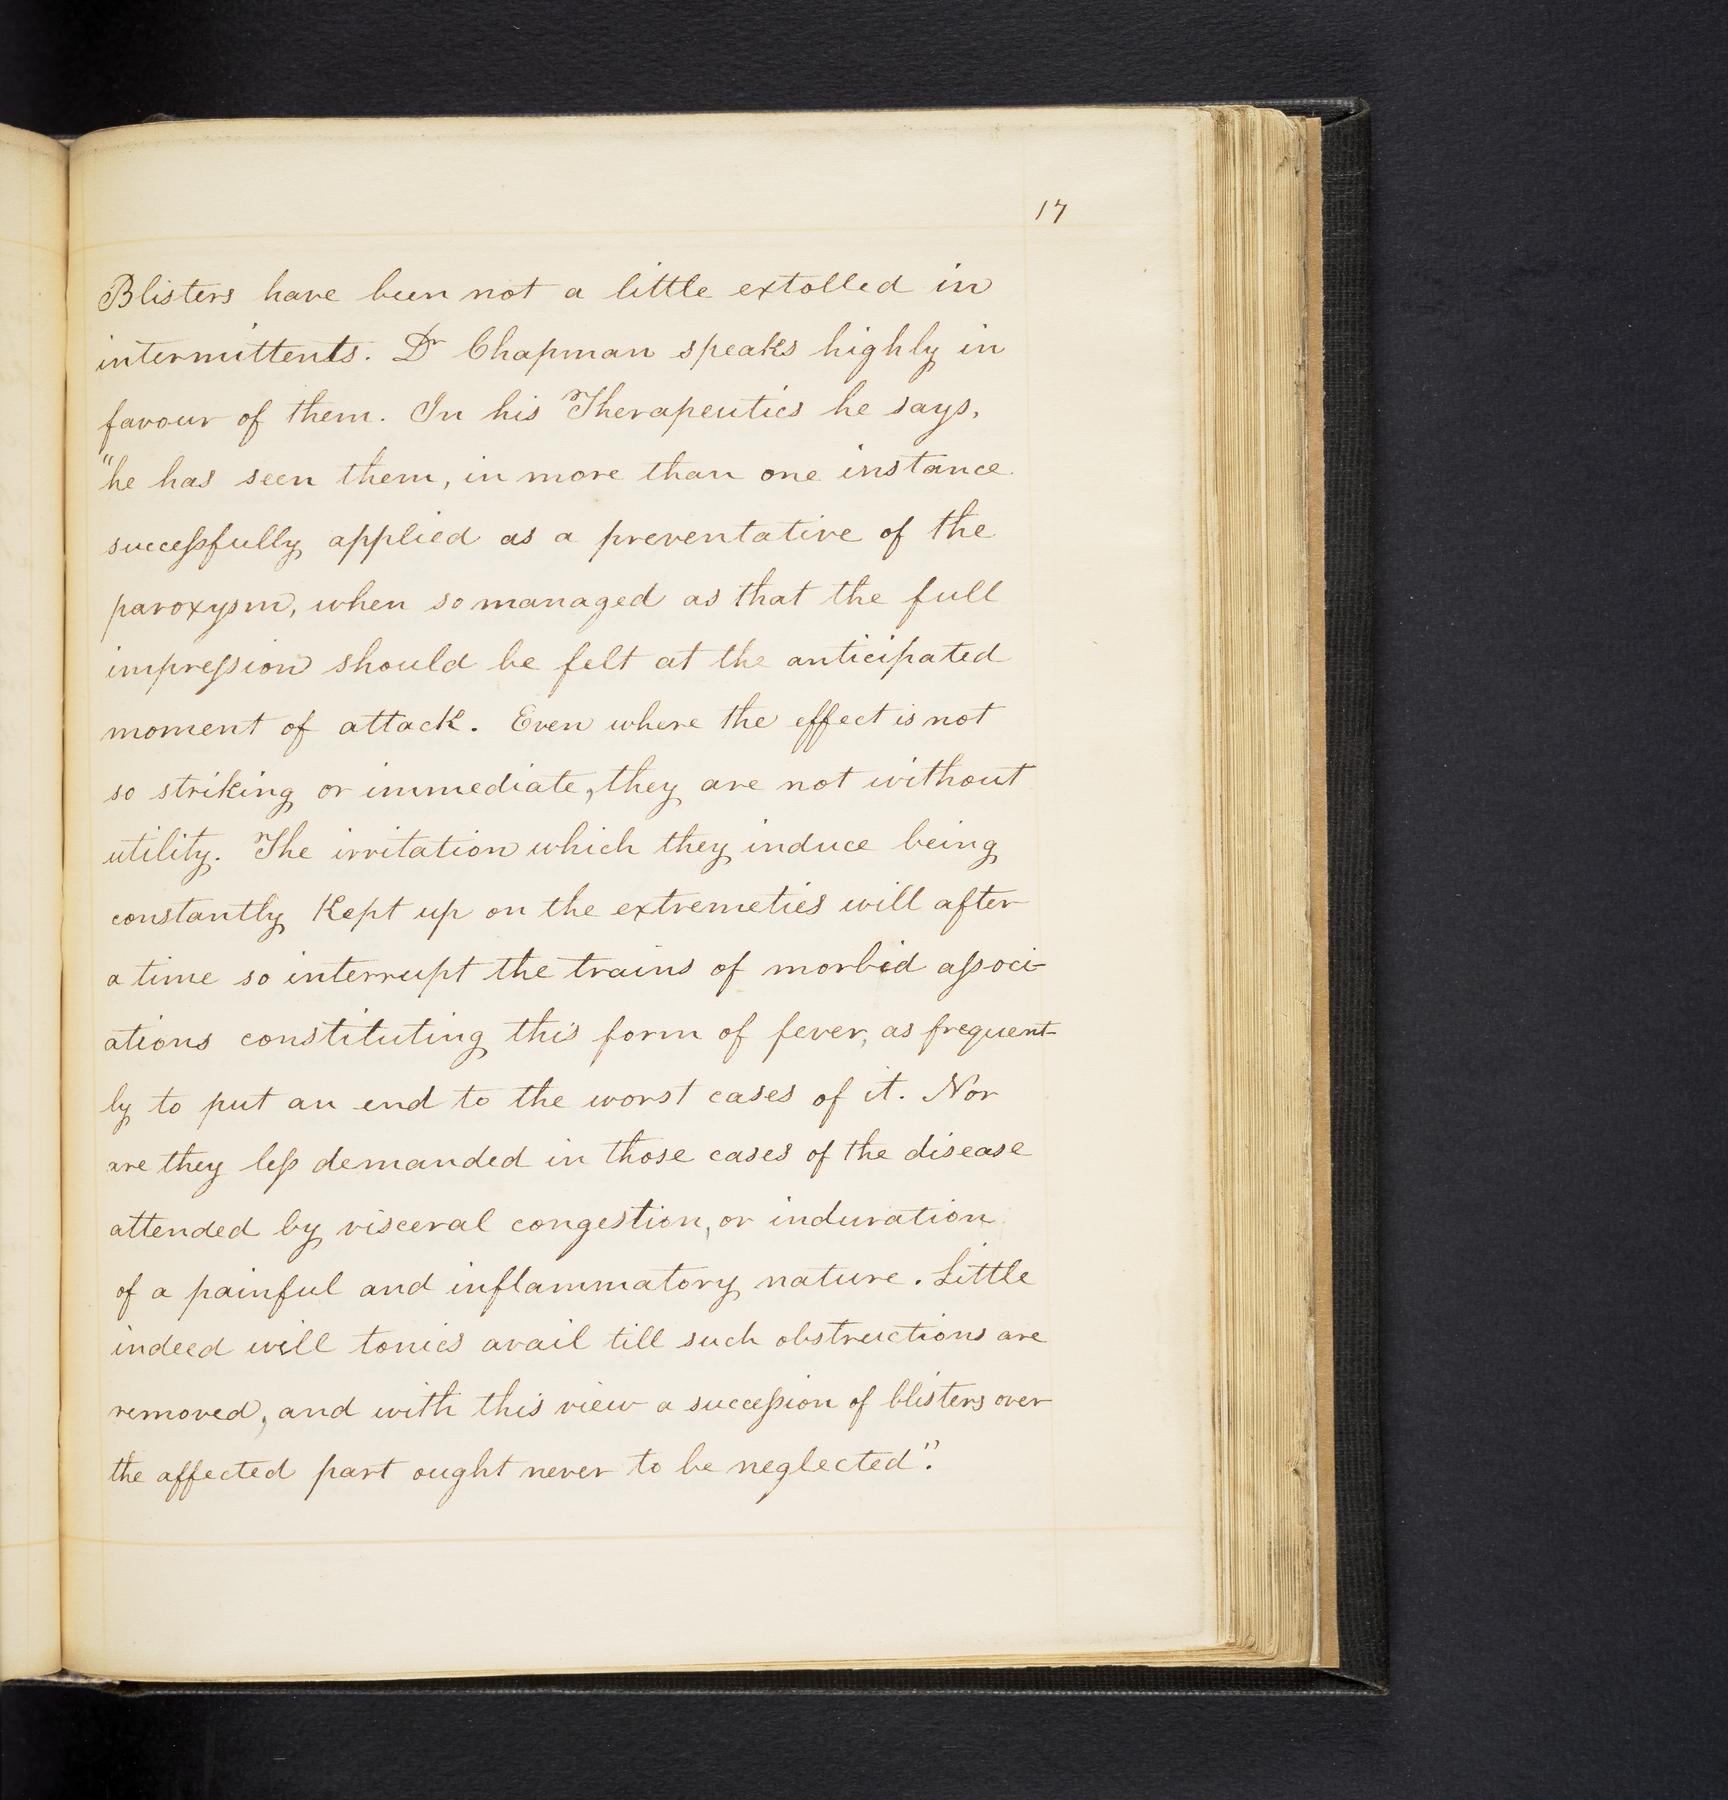 17
Blisters have been not a little extolled in
intermittents. Dr Chapman speaks highly in
favour of them. In his Therapeutics he says,
"he has seen them, in more than one instance
succeſsfully applied as a preventative of the
paroxysm, when so managed as that the full
impreſsion should be felt at the anticipated
moment of attack. Even where the effect is not
so striking or immediate, they are not without
utility. The irritation which they induce being
constantly Kept up on the extremeties will after
a time so interrupt the trains of morbid aſsoci-
ations constituting this form of fever, as frequent-
ly to put an end to the worst cases of it. Nor
are they leſs demanded in those cases of the disease
attended by visceral congestion, or induration
of a painful and inflammatory nature. Little
indeed will tonics avail till such obstructions are
removed, and with this view a succeſsion of blisters over
the affected part ought never to be neglected".